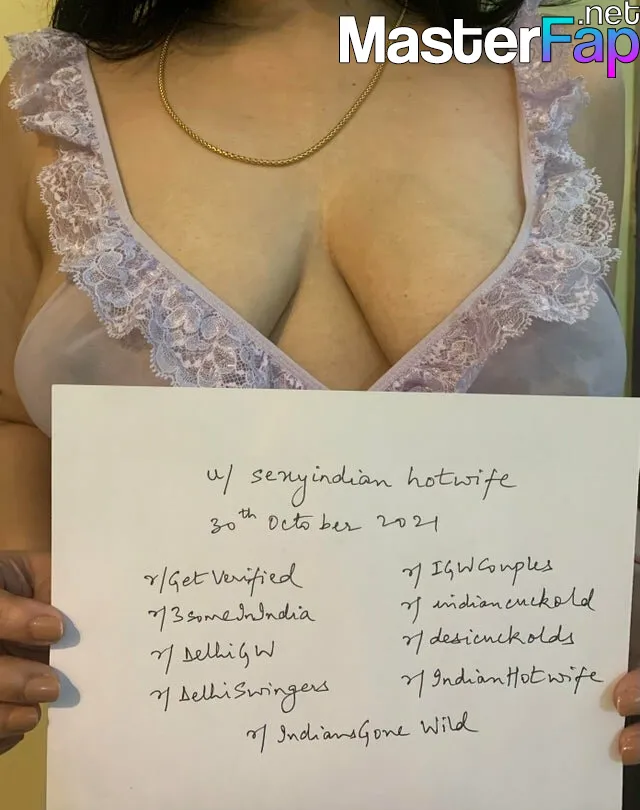 MasterFap
.net
u/ sexyindian hotwife
30th October 2021
r/GetVerified
r/3someInIndia
r/DelhiGW
r/DelhiSwingers
r/IGWCouples
r/indiancuckold
r/desicuckolds
r/IndianHotwife
r/IndiansGone Wild